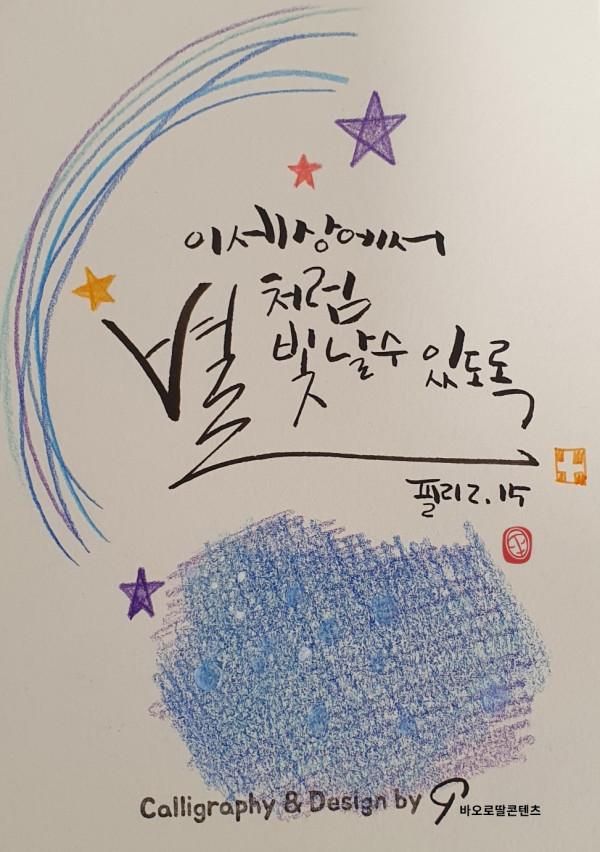 이세상에서
별처럼
빛날수 있도록
필리 2.15
Calligraphy & Design by 바오로딸콘텐츠